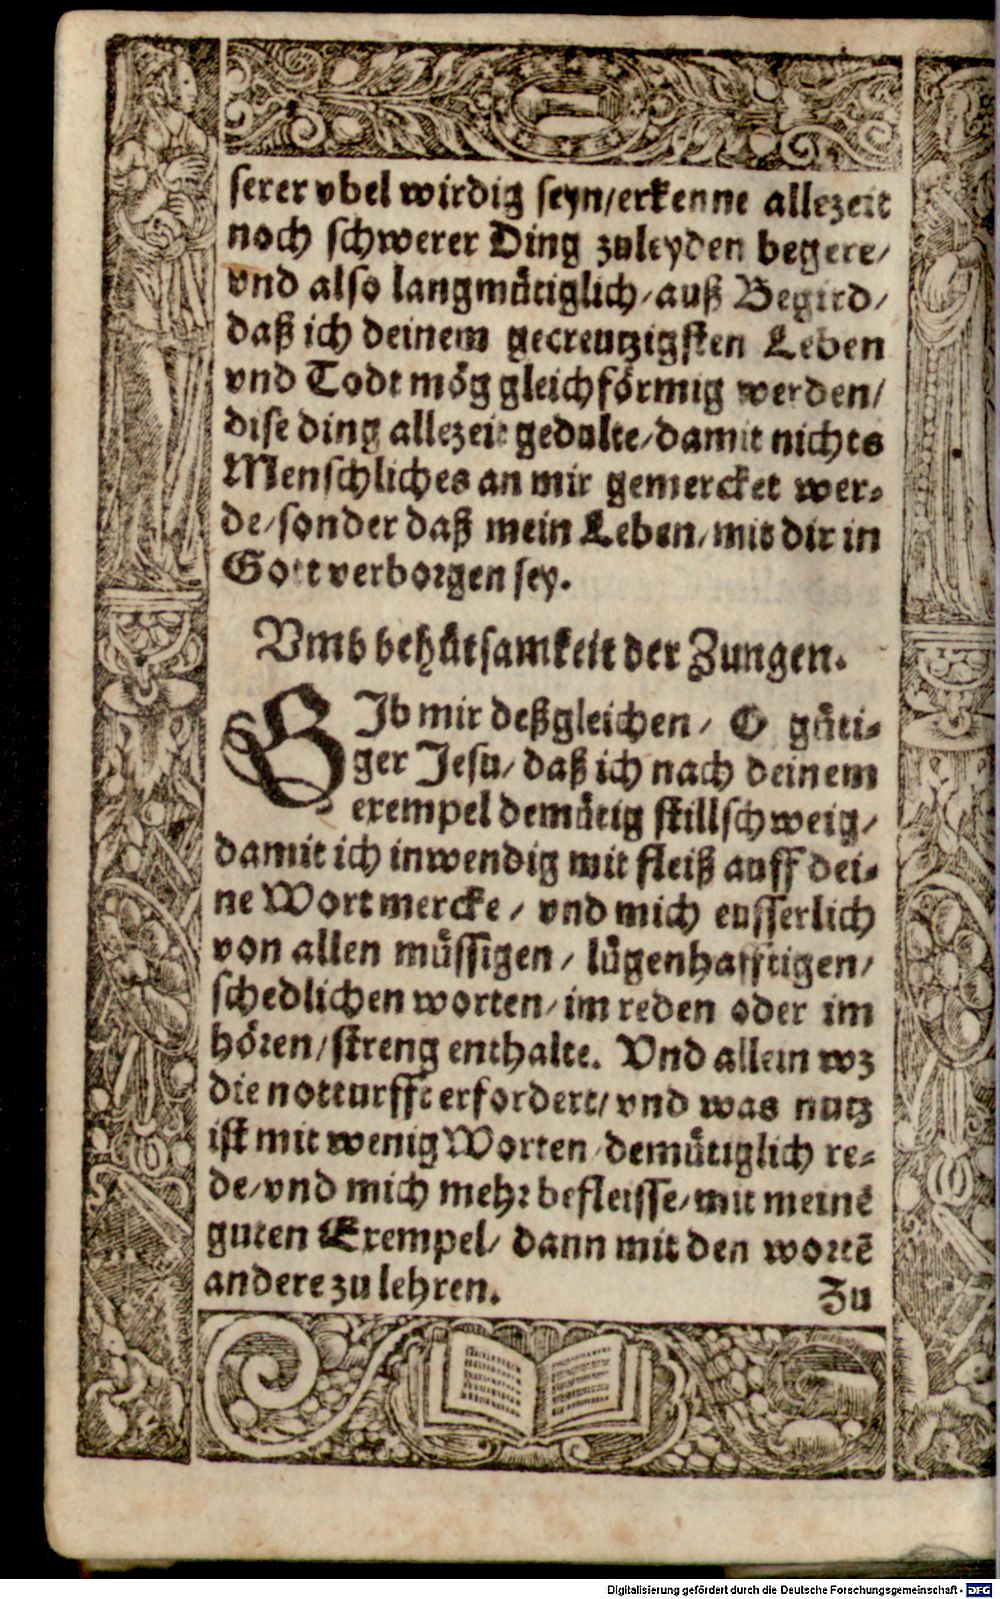 serer vbel wirdig seyn/erkenne allezeit
noch schwerer Ding zuleyden begere/
vnd also langmütiglich/auß Begird/
daß ich deinem gecreutzigsten Leben
vnd Todt mög gleichförmig werden/
dise ding allezeit gedulte/damit nichts
Menschliches an mir gemercket wer-
de/sonder daß mein Leben/mit dir in
Gott verborgen sey.
Vmb behütsamkeit der Zungen.
GIb mir deßgleichen/ O güti-
ger Jesu/daß ich nach deinem
exempel demütig stillschweig/
damit ich inwendig mit fleiß auff dei-
ne Wort mercke/ vnd mich eusserlich
von allen müssigen/ lügenhafftigen/
schedlichen worten/im reden oder im
hören/streng enthalte. Vnd allein wz
die notturfft erfordert/vnd was nutz
ist mit wenig Worten/demütiglich re-
de/vnd mich mehr befleisse/mit meinē
guten Exempel/ dann mit den wortē
andere zu lehren.
Zu
Digitalisierung gefördert durch die Deutsche Forschungsgemeinschaft - DFG